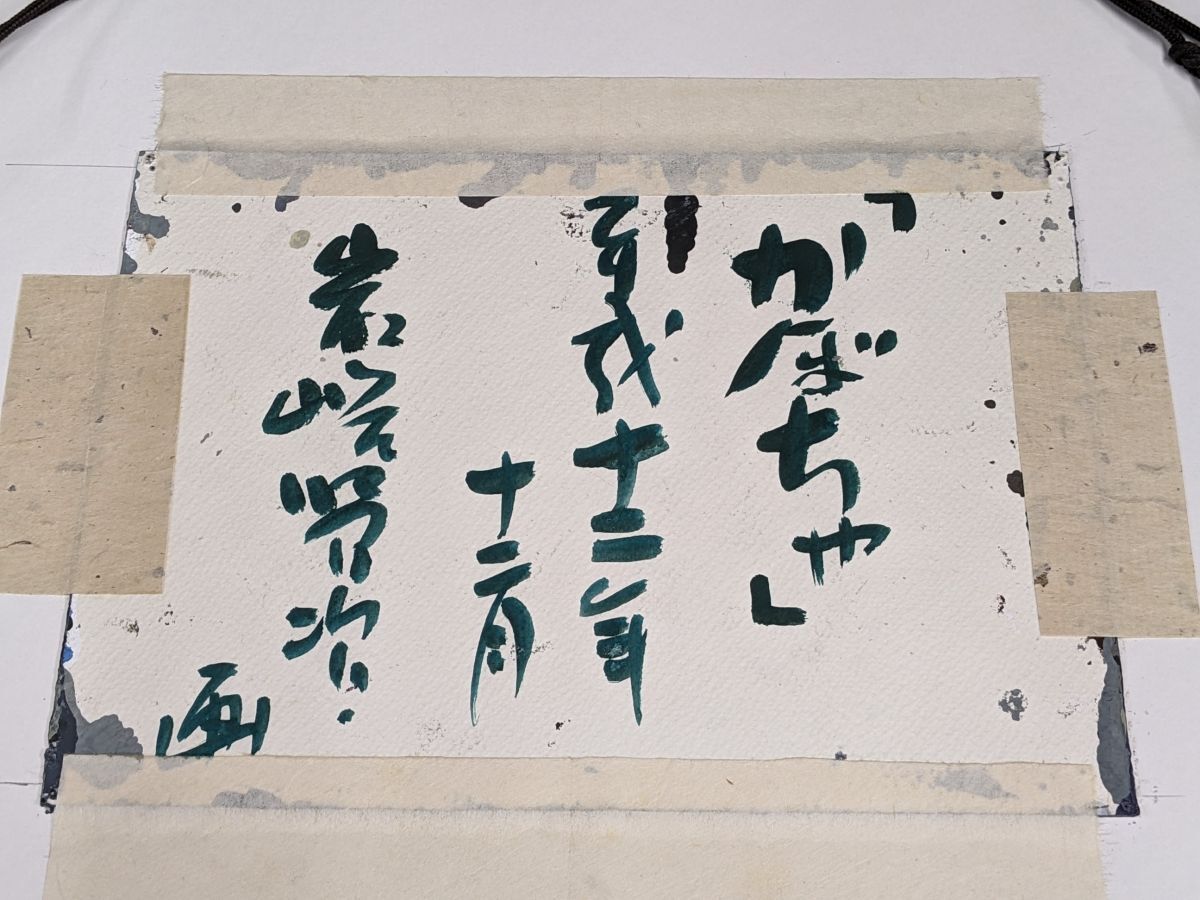 「かぼちゃ」
平成十二年
十二月
岩崎
画